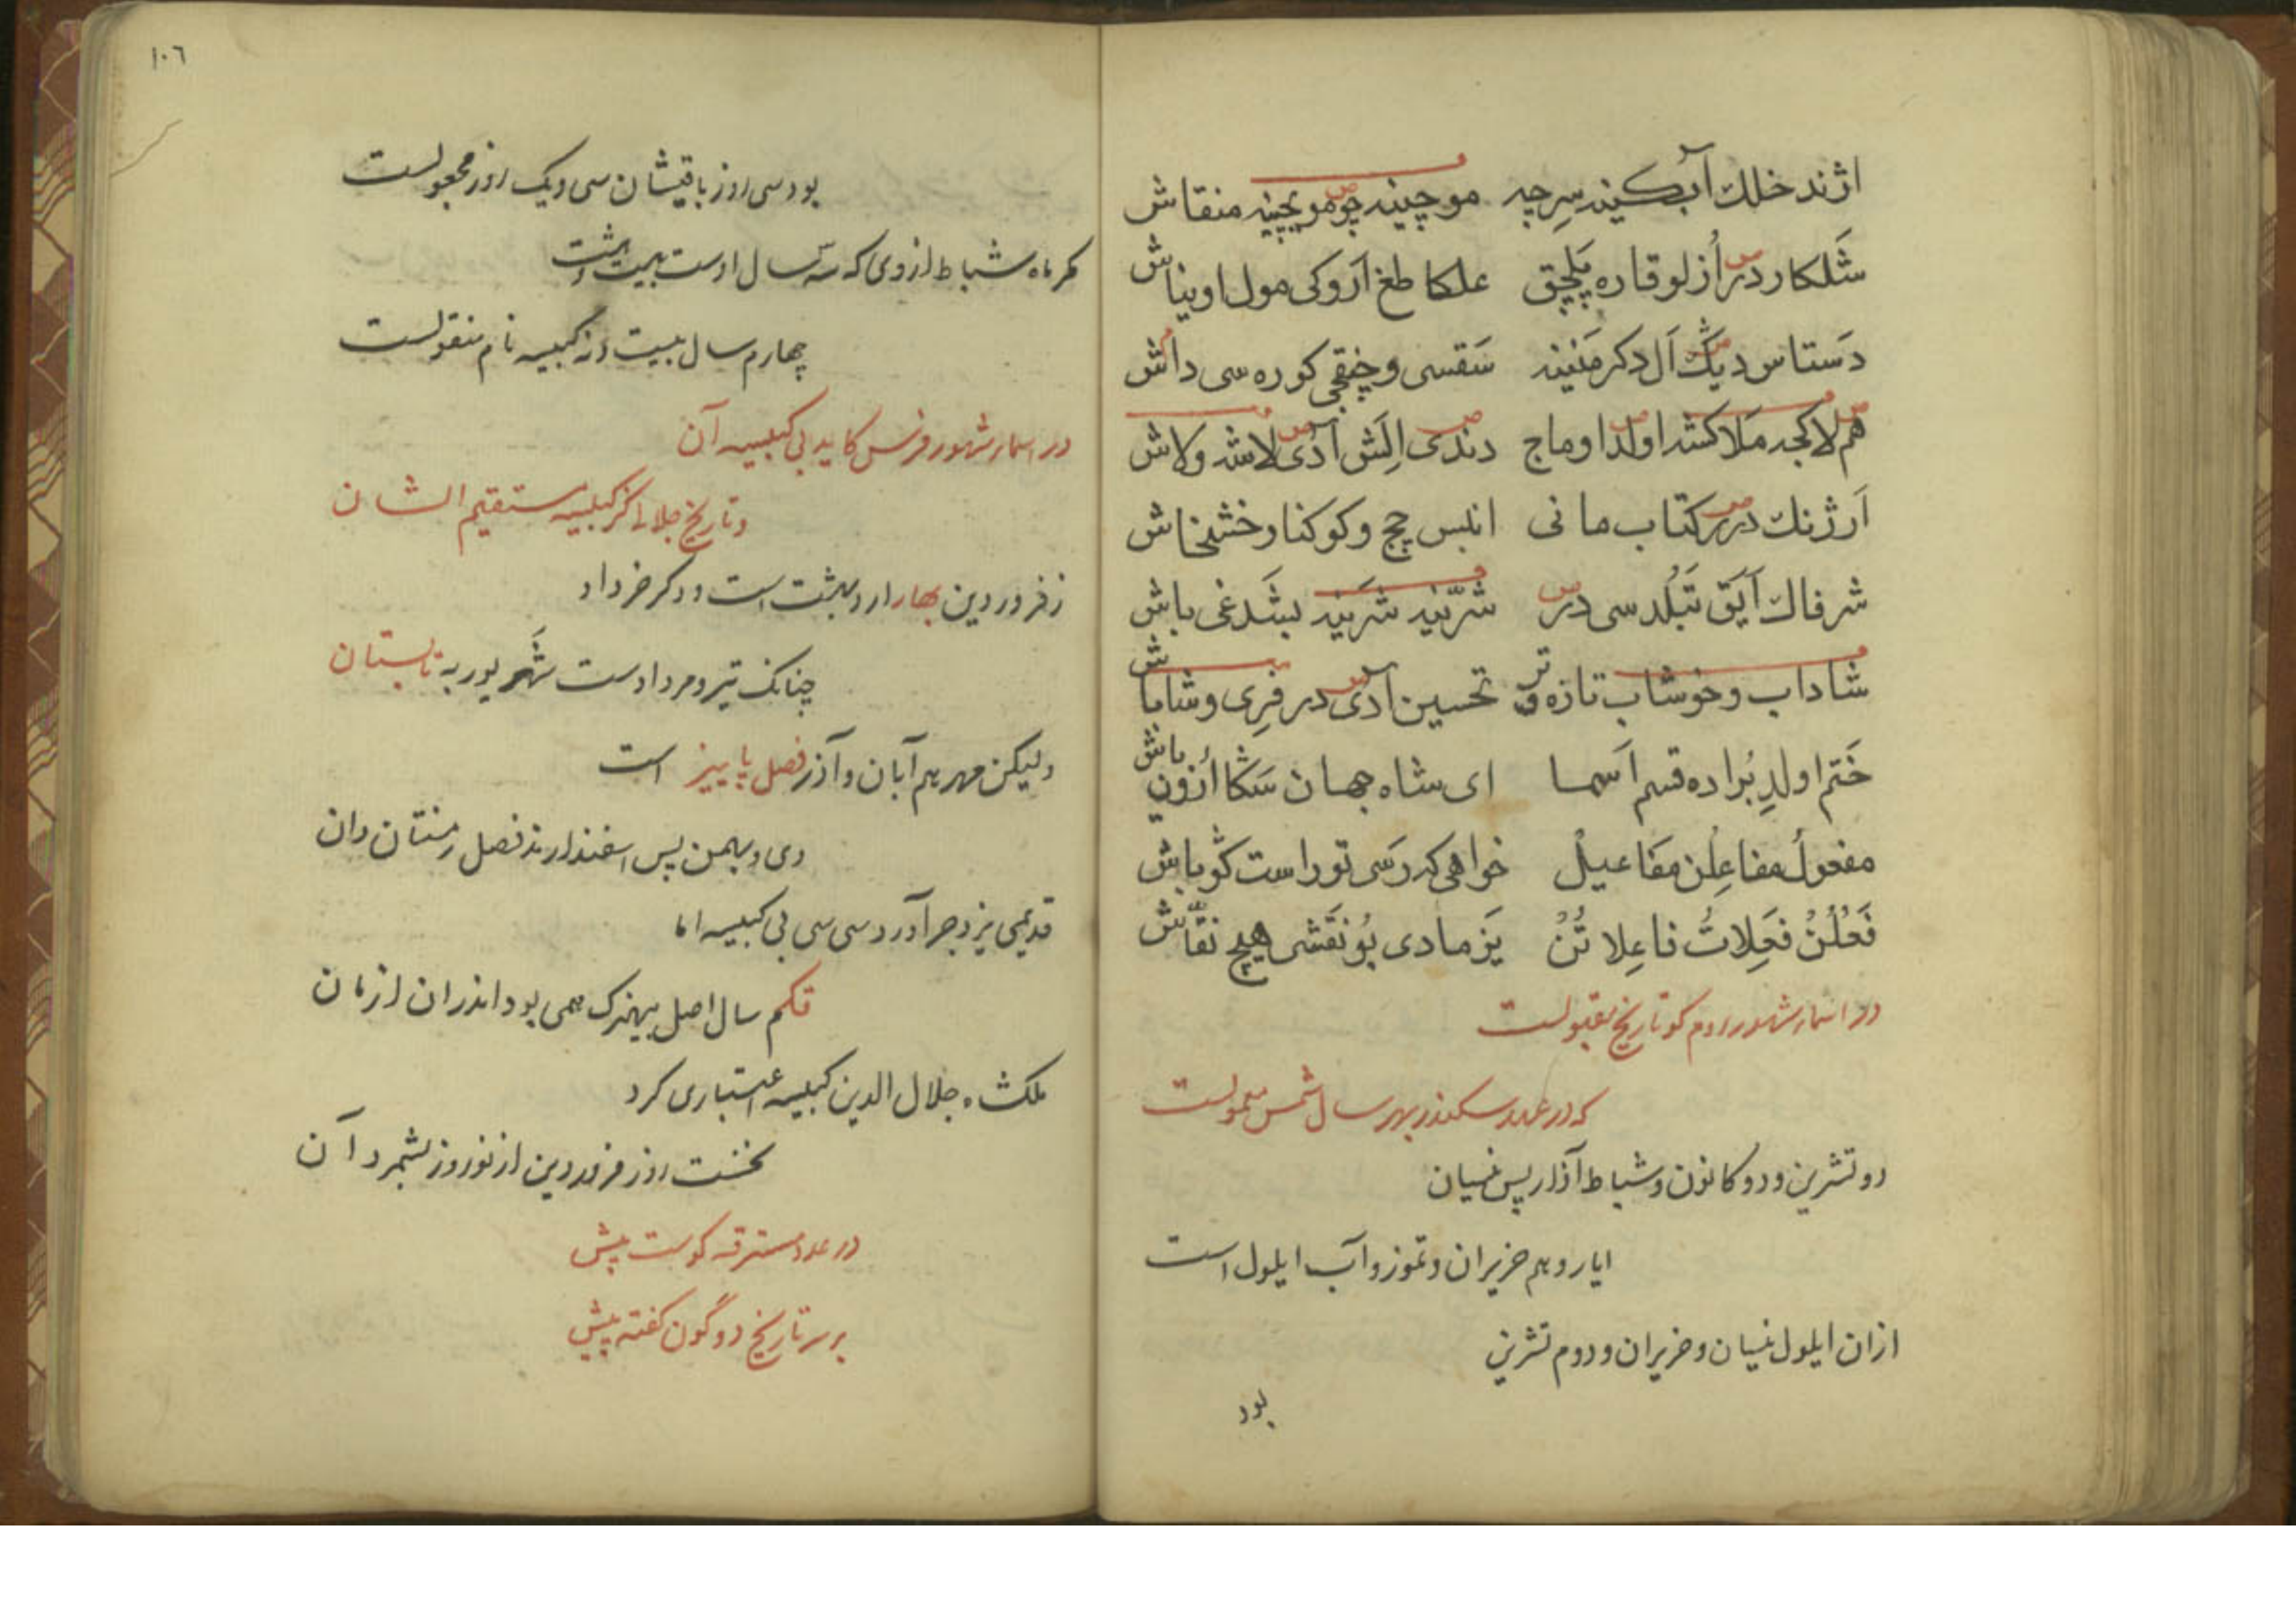 اژند خلك آبكینه سرچه موچینه چو موچینه منقاش
شلكار در ازلو قاره پلچق علكا طغ آروكی مول اویناش
دستاس دیك ال دكرمنینه سقسی و چنقچی كوره سی داش
هم لاكچه ملاكشه اولدا وماج دندی الش آدی لاشه ولاش
ارژنك در كتاب مانی انلبس چچ وكوكنار خشخاش
شرفاك آیق تبلدسی در شرینه شرینه لبشدغی باش
شاداب وخوشاب تازه و تر تحسین آدی در فری وشاباش
ختم اولد بواده قسم اسما ای شاه جهان سكا اوزون باش
مفعول مفاعلن مفاعیل خواهی كه رسی تو راست كو باش
فعلن فعلات فاعلاتن یزمادی بو نقشی هیچ نقاش
در اسماء شهور روم كو تاریخ مقبولست
كه در عهد سكندر بهر سال شمس معمولست
دو تشرین و دو كانون و شباط آذار پس نیسان
ایار و هم حزیران و تموز و آب ایلول است
ازان ایلول نیسان و حزیران و دوم تشرین
بود
١٠٦
بود سی روز باقیشان سی و یك روز مجعولست
مكر ماه شباط از وی كه سه سال اوست بیست و هشت
چهارم سال بیست و نه كبیسه نام منقولست
در اسماء شهور فرس كاید بی كبیسه آن
و تاریخ جلالی كز كبیسه مستقیم الشان
ز فروردین بهار اردبهشت است و دكر خرداد
چنانك تیر و مرداد ست شهریور به تابستان
ولیكن مهر هم آبان و آذر فصل پاییز است
دی و بهمن پس اسفندارمذ فصل زمستان دان
قدیمی یزدجرد آورد سی سی بی كبیسه اما
قكم سال اصل بهیزك همی بود اندران ازمان
ملكشاه جلال الدین كبیسه اعتباری كرد
نخست روز فروردین از نوروز بشمرد آن
در عدد مسترقه كوست پیش
بر سر تاریخ دو گون كفته پیش